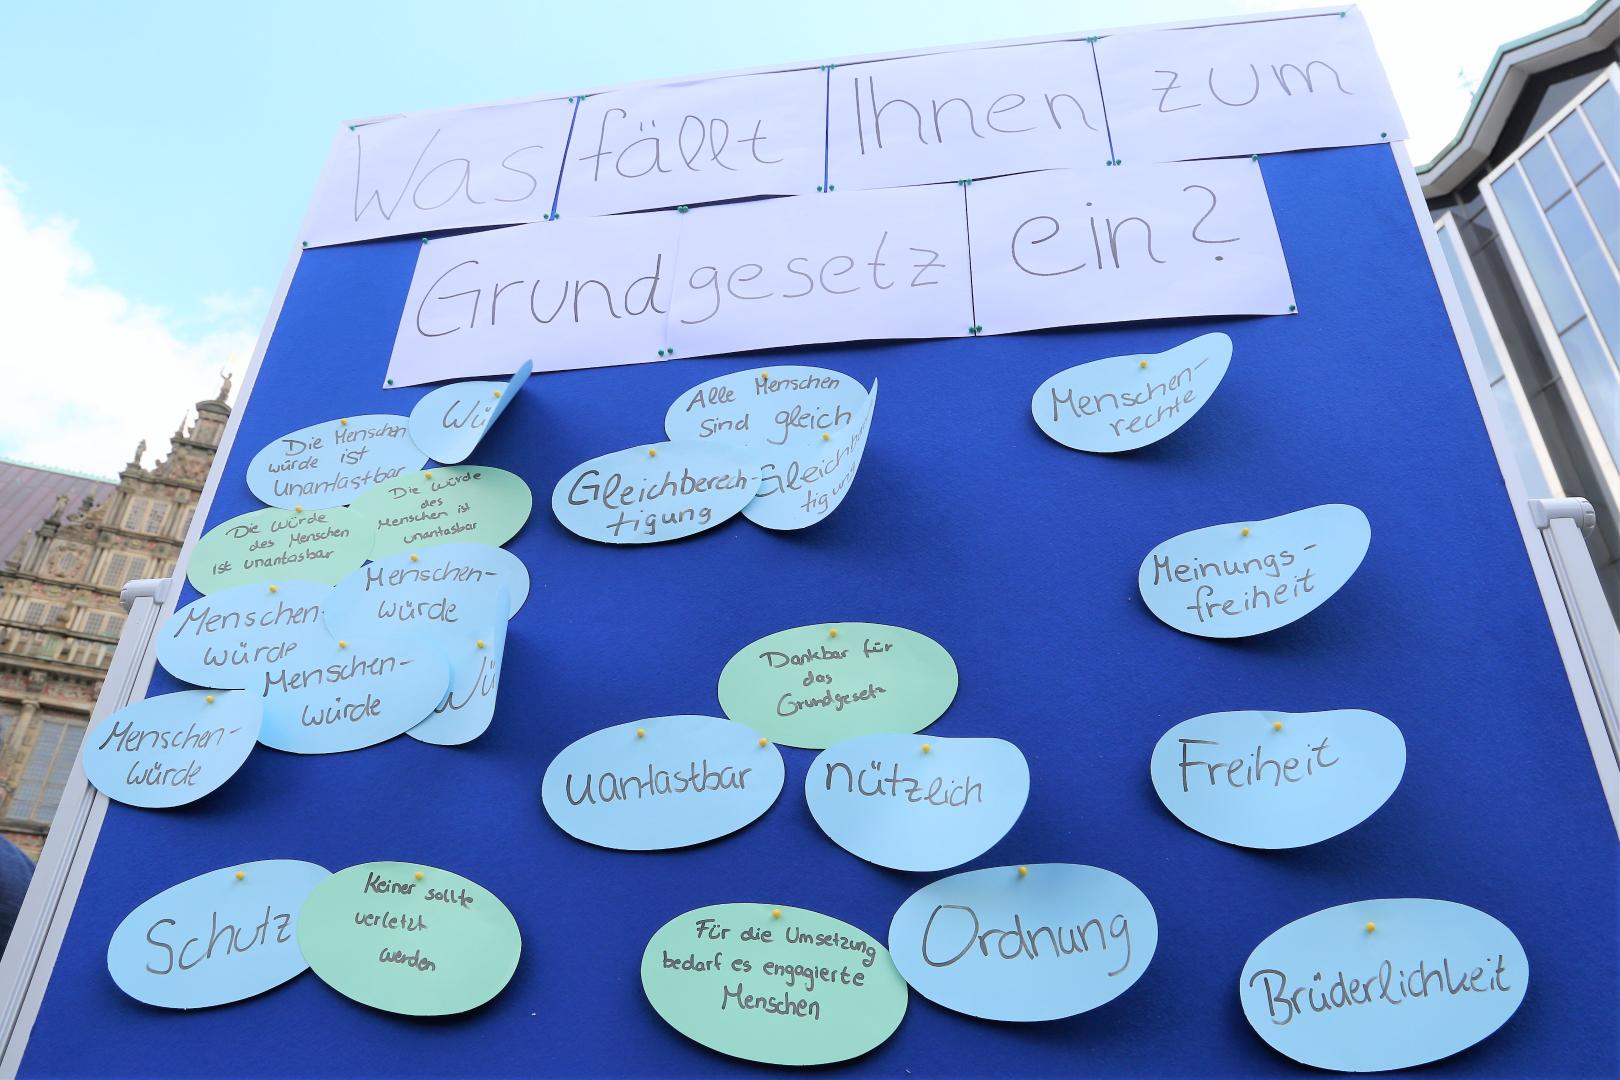 Was fällt Ihnen zum
Grundgesetz ein?
Wü
Die Menschen
würde ist
Unantastbar
Die Würde
des
Menschen ist
unantasbar
Die Würde
des Menschen
ist unantasbar
Menschen-
würde
Menschen-
würde
Menschen-
würde
Wü
Menschen-
würde
Alle Menschen
sind gleich
Gleichberech-
tigung
Gleichbe
tigung
Menschen-
rechte
Meinungs-
freiheit
Dankbar für
das
Grundgesetz
uantastbar
nützlich
Freiheit
Schutz
Keiner sollte
verletzt
werden
Für die Umsetzung
bedarf es engagierte
Menschen
Ordnung
Brüderlichkeit